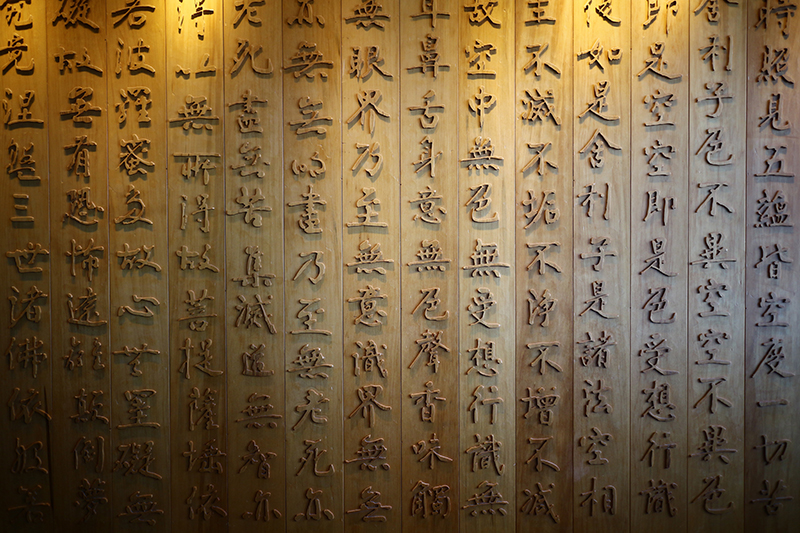 時照見五蘊皆空度一切苦
舍利子色不異空空不異色
即是空空即是色受想行識
復如是舍利子是諸法空相
生不滅不垢不淨不增不減
故空中無色無受想行識無
耳鼻舌身意無色聲香味觸
無眼界乃至無意識界無無
亦無無明盡乃至無老死亦
老死盡無苦集滅道無智亦
得以無所得故菩提薩埵依
若波羅蜜多故心無罣礙無
礙故無有恐怖遠離顛倒夢
究竟涅槃三世諸佛依般若